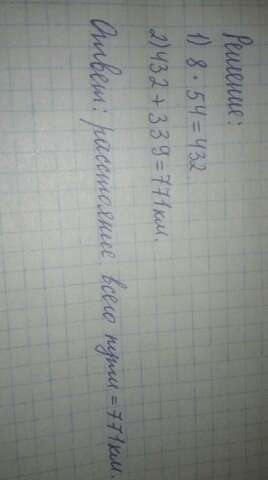 Решение:
1) 8 · 54 = 432
2) 432 + 339 = 771 км.
Ответ: расстояние всего пути = 771 км.